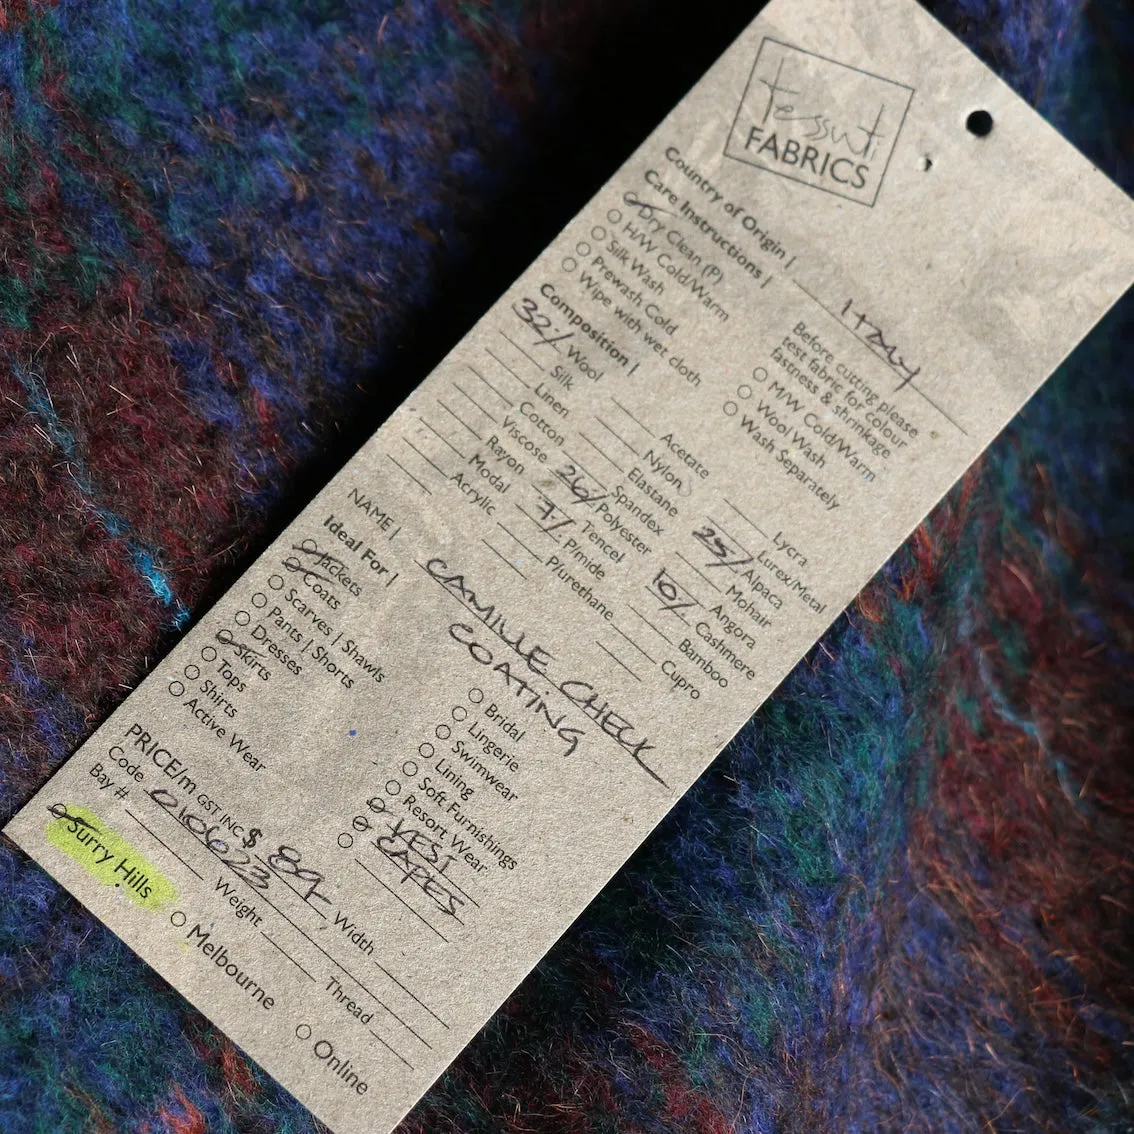 tessuti
FABRICS
Country of Origin | Italy
Care Instructions |
Dry Clean (P)
H/W Cold/Warm
Silk Wash
Prewash Cold
Wipe with wet cloth
Before cutting please
test fabric for colour
fastness & shrinkage
M/W Cold/Warm
Wool Wash
Wash Separately
Composition |
32/ Wool
Silk
Linen
Cotton
Viscose
Rayon
Modal
Acrylic
Acetate
Nylon
Elastane
Spandex
26/ Polyester
Tencel
7/ P/mide
P/urethane
Lycra
Lurex/Metal
25/ Alpaca
Mohair
Angora
10/ Cashmere
Bamboo
Cupro
NAME | CAMILLE CHECK
COATING
Ideal For |
Jackets
Coats
Scarves | Shawls
Pants | Shorts
Dresses
Skirts
Tops
Shirts
Active Wear
Bridal
Lingerie
Swimwear
Lining
Soft Furnishings
Resort Wear
VEST
CAPES
PRICE/m GST INC. $ 89- Width
Code 010623 Weight Thread
Bay #
Surry Hills Melbourne Online